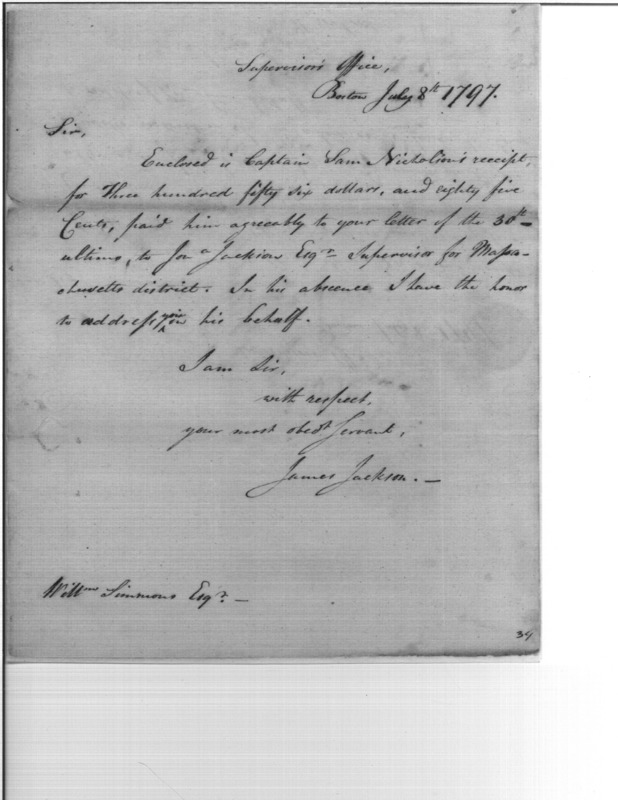 Supervisor's Office,
Boston July 8th 1797.
Sir,
Enclosed is Captain Sam Nicholson's receipt,
for Three hundred fifty six dollars, and eighty five
Cents, paid him agreeably to your letter of the 30th
ultimo, to Jona Jackson Esqr Supervisor for Massa-
chusetts district. In his absence I have the honor
to address you in his behalf.
I am Sir,
with respect,
your most obedt Servant,
James Jackson. —
Willm Simmons Esqr. —
34